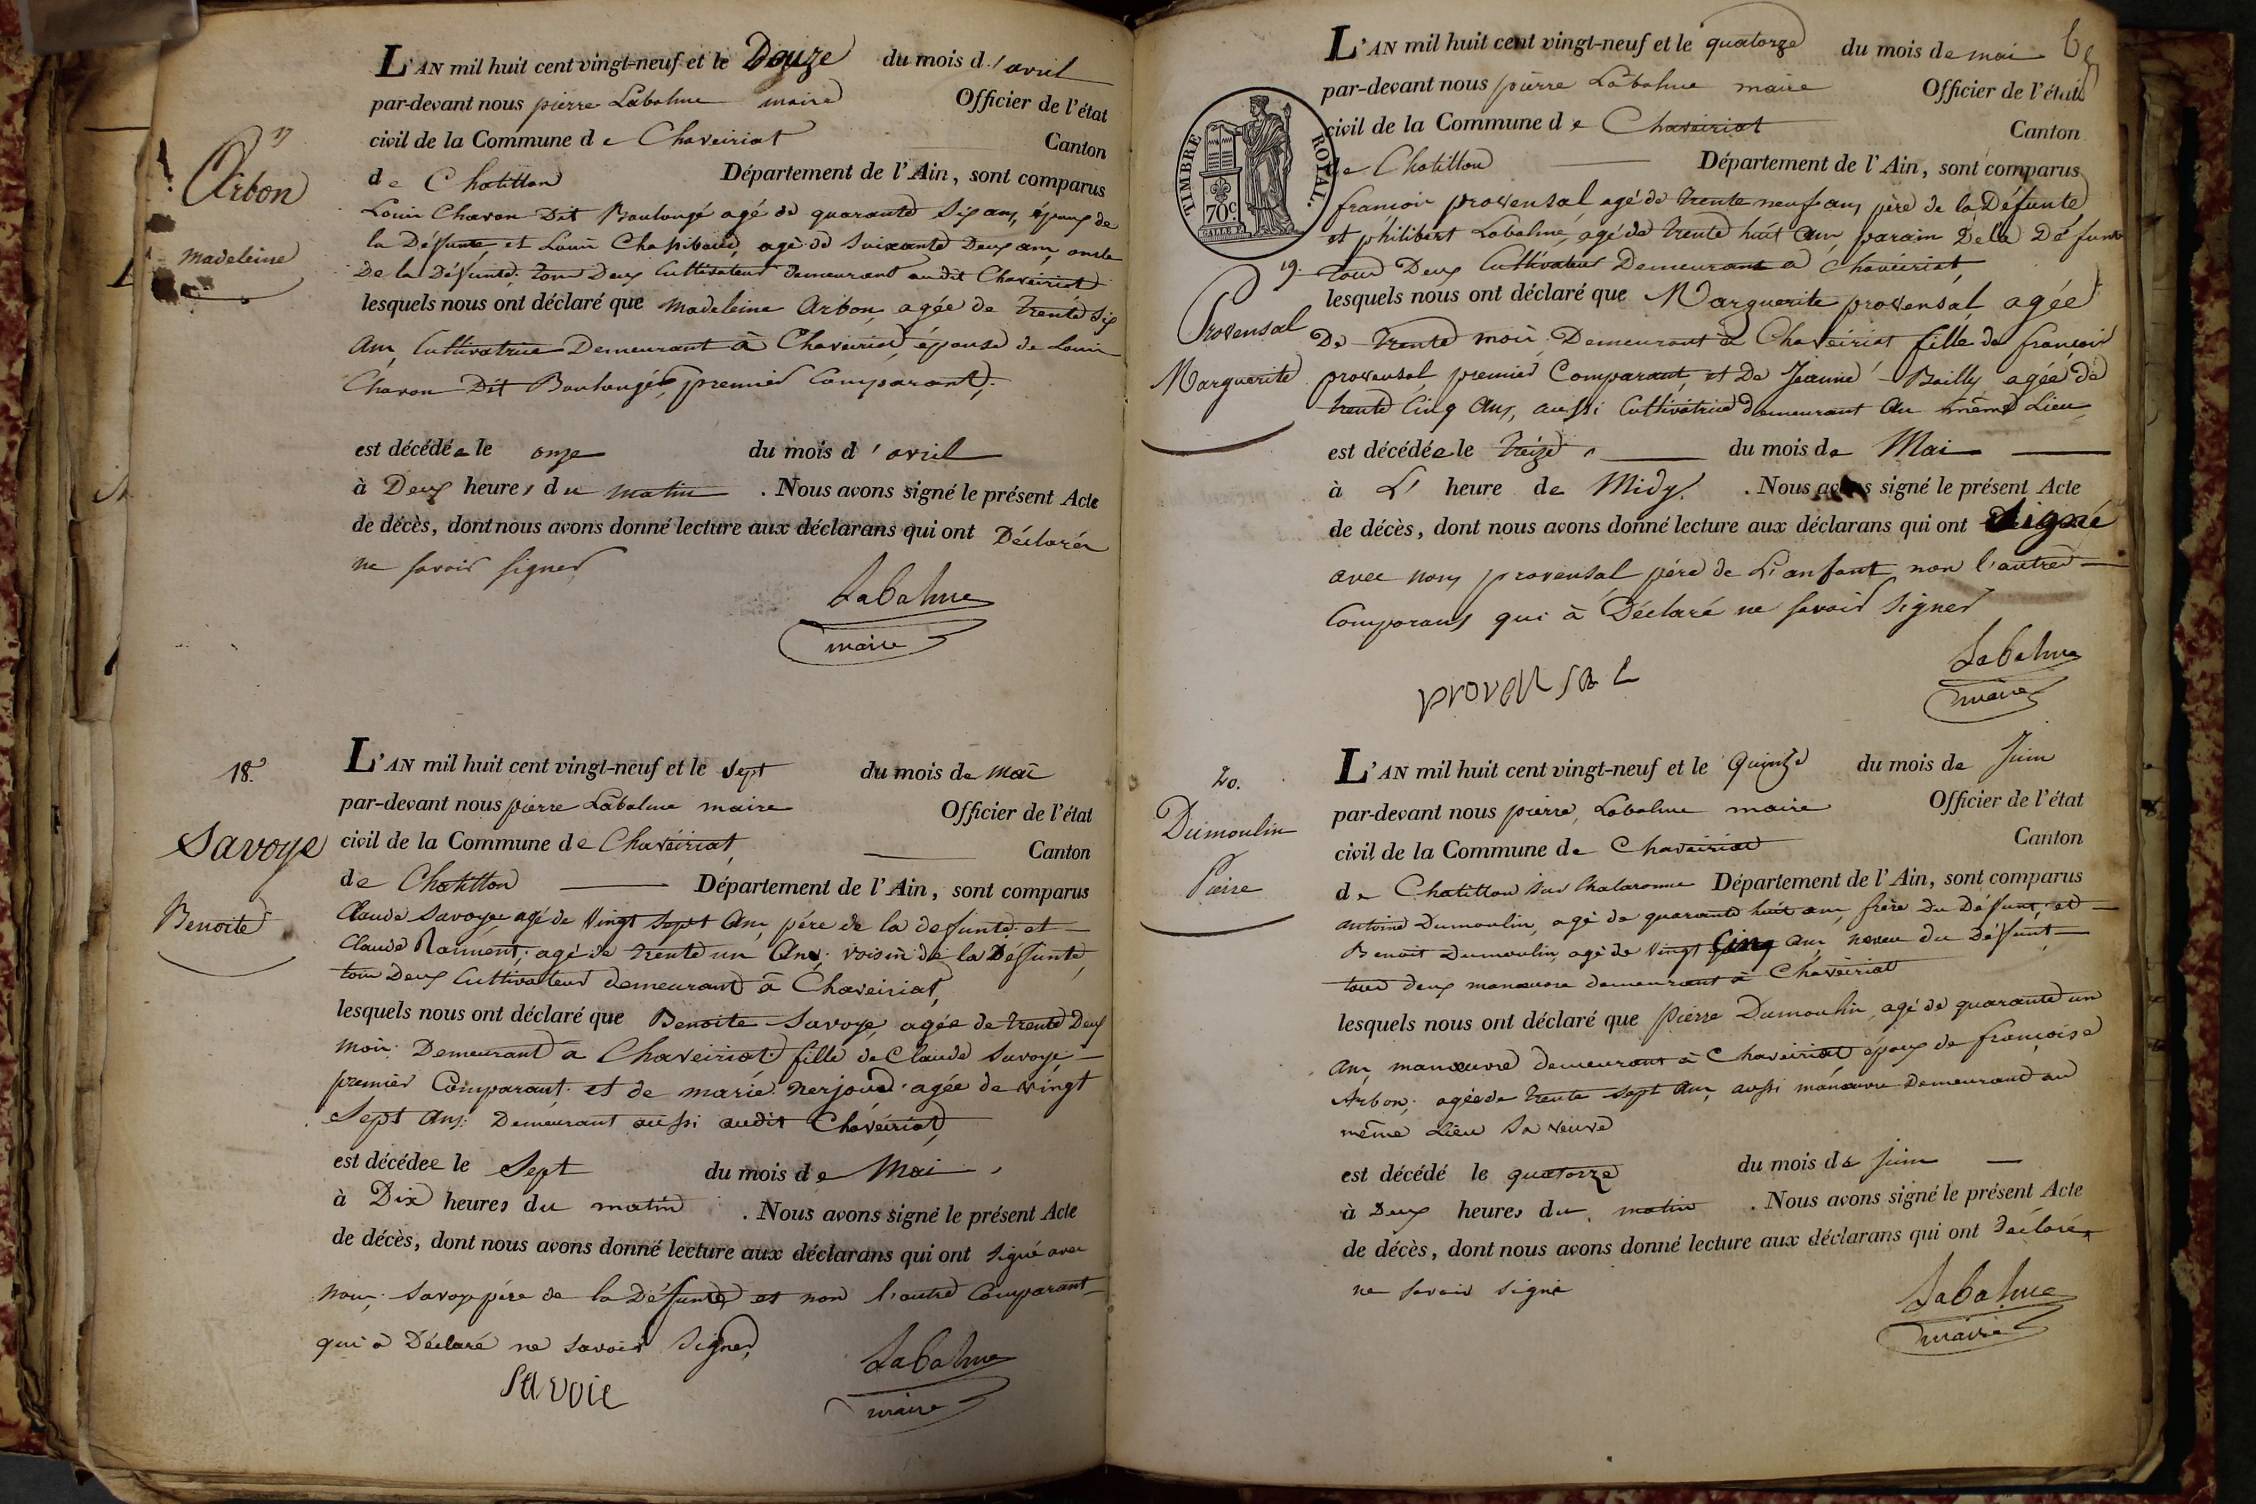 17
Arbon
Madeleine
L'AN mil huit cent vingt-neuf et le Douze du mois d'avril
par-devant nous pierre Labalme maire Officier de l'état
civil de la Commune de Chaveiriat Canton
de Chatillon Département de l'Ain, sont comparus
Louis Chavon Dit Boulongé agé de quarante six ans, époux de
la Défunte, et Louis agé de soixante Deux ans, oncle
De la Défunte, tous Deux Cultivateurs demeurant audit Chaveiriat
lesquels nous ont déclaré que Madeleine Arbon, agée de trente six
ans, Cultivatrice Demeurant à Chaveiriat, épouse de Louis
Chavon Dit Boulongé, premier Comparant,
est décédée le onze du mois d'avril
à Deux heures du matin . Nous avons signé le présent Acte
de décès, dont nous avons donné lecture aux déclarans qui ont Déclarés
ne savoir signer
Labalme
maire
18.
Savoye
Benoite
L'AN mil huit cent vingt-neuf et le sept du mois de mai
par-devant nous pierre Labalme maire Officier de l'état
civil de la Commune de Chaveiriat, Canton
de Chatillon Département de l'Ain, sont comparus
Claude Savoye agé de vingt sept ans, père de la defunte et
Claude agé de trente un ans, voisin de la Défunte,
tous Deux Cultivateurs demeurant à Chaveiriat,
lesquels nous ont déclaré que Benoite Savoye, agée de trente Deux
mois Demeurant à Chaveiriat fille de Claude Savoye
premier Comparant et de marie nerjoud agée de vingt
sept ans, Demeurant aussi audit Chaveiriat,
est décédée le sept du mois de Mai
à Dix heures du matin . Nous avons signé le présent Acte
de décès, dont nous avons donné lecture aux déclarans qui ont signé avec
nous, savoye père de la Défunte et non l'autre Comparant
qui a Déclaré ne savoir signer,
savoie
Labalme
maire
L'AN mil huit cent vingt-neuf et le quatorze du mois de mai
par-devant nous pierre Labalme maire Officier de l'état
civil de la Commune de Chaveiriat Canton
de Chatillon Département de l'Ain, sont comparus
TIMBRE ROYAL.
70c.
francois provensal agé de trente neuf ans, père de la Défunte
et philibert Labalme, agé de trente huit ans, parain De la Défunte
tous Deux Cultivateurs Demeurant à Chaveiriat,
19.
Provensal
Marguerite
lesquels nous ont déclaré que Marguerite provensal, agée
De trente mois, Demeurant à Chaveiriat fille de françois
provensal premier Comparant, et De Jeanne Bailly agée de
trente Cinq ans, aussi Cultivatrice demeurant au même Lieu
est décédée le treize du mois de Mai
à L' heure de Midy. . Nous avons signé le présent Acte
de décès, dont nous avons donné lecture aux déclarans qui ont signé
avec nous provensal père de L'enfant non l'autre
Comparans qui à Déclaré ne savoir signer
provensal
Labalme
maire
20.
Dumoulin
Pierre
L'AN mil huit cent vingt-neuf et le Quinze du mois de Juin
par-devant nous pierre Labalme maire Officier de l'état
civil de la Commune de Chaveiriat Canton
de Chatillon sur Chalaronne Département de l'Ain, sont comparus
antoine Dumoulin, agé de quarante huit ans, frère Du Défunt, et
Benoit Dumoulin, agé de vingt Cinq ans, neveu du Défunt,
tous deux manœuvre demeurant à Chaveiriat
lesquels nous ont déclaré que pierre Dumoulin, agé de quarante un
ans, manœuvre demeurant à Chaveiriat époux de françoise
Arbon, agée de trente sept ans, aussi manœuvre Demeurand au
même Lieu sa veuve
est décédé le quatorze du mois de Juin
à Deux heures du matin . Nous avons signé le présent Acte
de décès, dont nous avons donné lecture aux déclarans qui ont déclarés
ne savoir signé
Labalme
maire